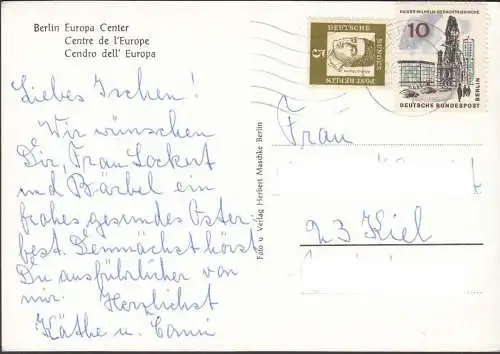 Berlin Europa Center
Centre de l'Europe
Cendro dell' Europa
Liebes Ischen!
Wir wünschen
Dir, Frau Lockert
und Bärbel ein
frohes gesundes Oster-
fest. Demnächst hörst
Du ausführlicher von
mir. Herzlichst
Käthe u.
Foto u. Verlag Herbert Maschke Berlin
5
DEUTSCHE
BUNDES
POST BERLIN
KAISER-WILHELM-GEDÄCHTNISKIRCHE
10
DEUTSCHE BUNDESPOST
BERLIN
Frau
23 Kiel